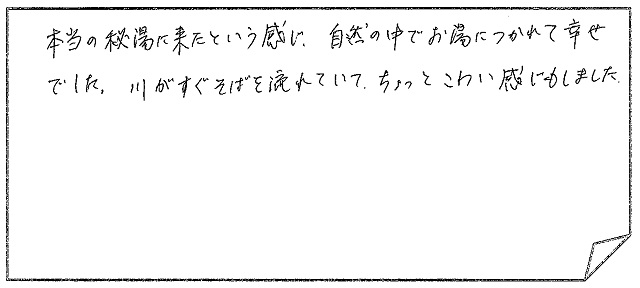 本当の秘湯に来たという感じ、自然の中でお湯につかれて幸せ
でした。川がすぐそばを流れていて、ちょっとこわい感じもしました。